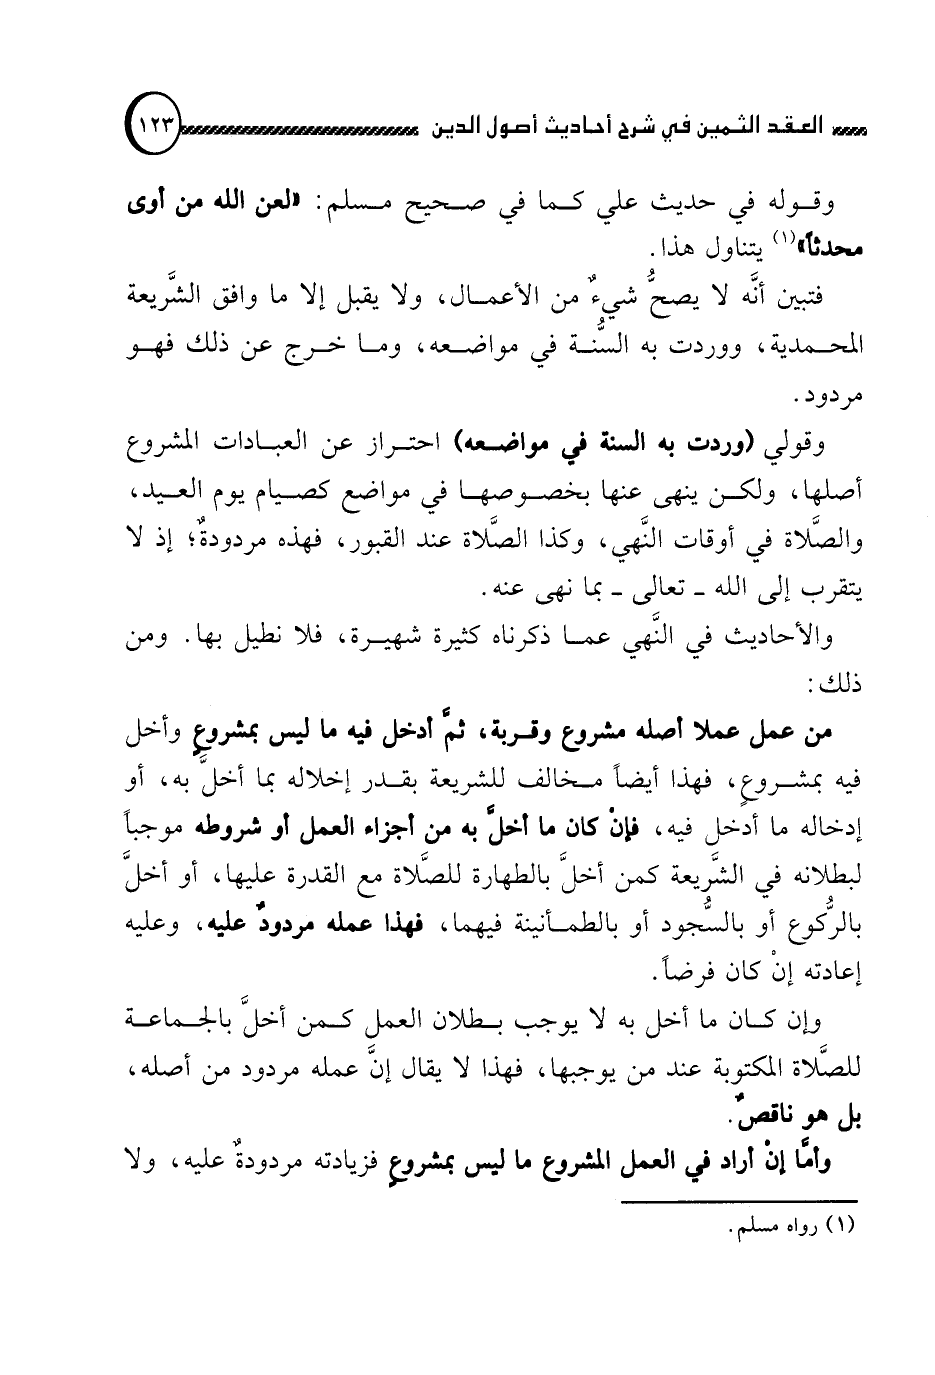 العقد الثمين في شرح أحاديث أصول الدين ١٢٣
وقوله في حديث علي كما في صحيح مسلم: «لعن الله من أوى
محدثاً»(١) يتناول هذا.
فتبين أنَّه لا يصحُّ شيءٌ من الأعمال، ولا يقبل إلا ما وافق الشَّريعة
المحمدية، ووردت به السنُّة في مواضعه، وما خرج عن ذلك فهو
مردود.
وقولي (وردت به السنة في مواضعه) احتراز عن العبادات المشروع
أصلها، ولكن ينهى عنها بخصوصها في مواضع كصيام يوم العيد،
والصَّلاة في أوقات النَّهي، وكذا الصَّلاة عند القبور، فهذه مردودةٌ؛ إذ لا
يتقرب إلى الله - تعالى - بما نهى عنه.
والأحاديث في النَّهي عما ذكرناه كثيرة شهيرة، فلا نطيل بها. ومن
ذلك:
من عمل عملا أصله مشروع وقربة، ثمَّ أدخل فيه ما ليس بمشروعٍ وأخل
فيه بمشروعٍ، فهذا أيضاً مخالف للشريعة بقدر إخلاله بما أخلَّ به، أو
إدخاله ما أدخل فيه، فإنْ كان ما أخلَّ به من أجزاء العمل أو شروطه موجباً
لبطلانه في الشَّريعة كمن أخلَّ بالطهارة للصَّلاة مع القدرة عليها، أو أخلَّ
بالرُّكوع أو بالسُّجود أو بالطمأنينة فيهما، فهذا عمله مردودٌ عليه، وعليه
إعادته إنْ كان فرضاً.
وإن كان ما أخل به لا يوجب بطلان العمل كمن أخلَّ بالجماعة
للصَّلاة المكتوبة عند من يوجبها، فهذا لا يقال إنَّ عمله مردود من أصله،
بل هو ناقصٌ.
وأمَّا إنْ أراد في العمل المشروع ما ليس بمشروعٍ فزيادته مردودةٌ عليه، ولا
(١) رواه مسلم.